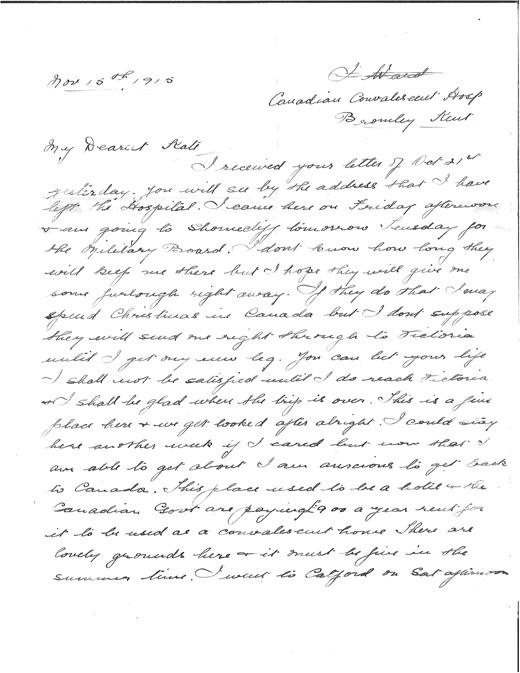 Nov 15th, 1915
I Ward
Canadian Convalescent Hosp
Bromley Kent
My Dearest Kate
I received your letter of Oct 21st
yesterday. You will see by the address that I have
left the Hospital. I came here on Friday afternoon
& am going to Shorncliff tomorrow Tuesday for
the Military Board. I dont know how long they
will keep me there but I hope they will give me
some furlough right away. If they do that I may
spend Christmas in Canada but I dont suppose
they will send me right through to Victoria
until I get my new leg. You can bet your life
I shall not be satisfied until I do reach Victoria
& I shall be glad when the trip is over. This is a fine
place here & we get looked after alright. I could stay
here another week if I cared but now that I
am able to get about I am anxious to get back
to Canada. This place used to be a hotel & the
Canadian Govt are paying £900 a year rent for
it to be used as a convalescent home There are
lovely grounds here & it must be fine in the
summer time. I went to Catford on Sat afternoon